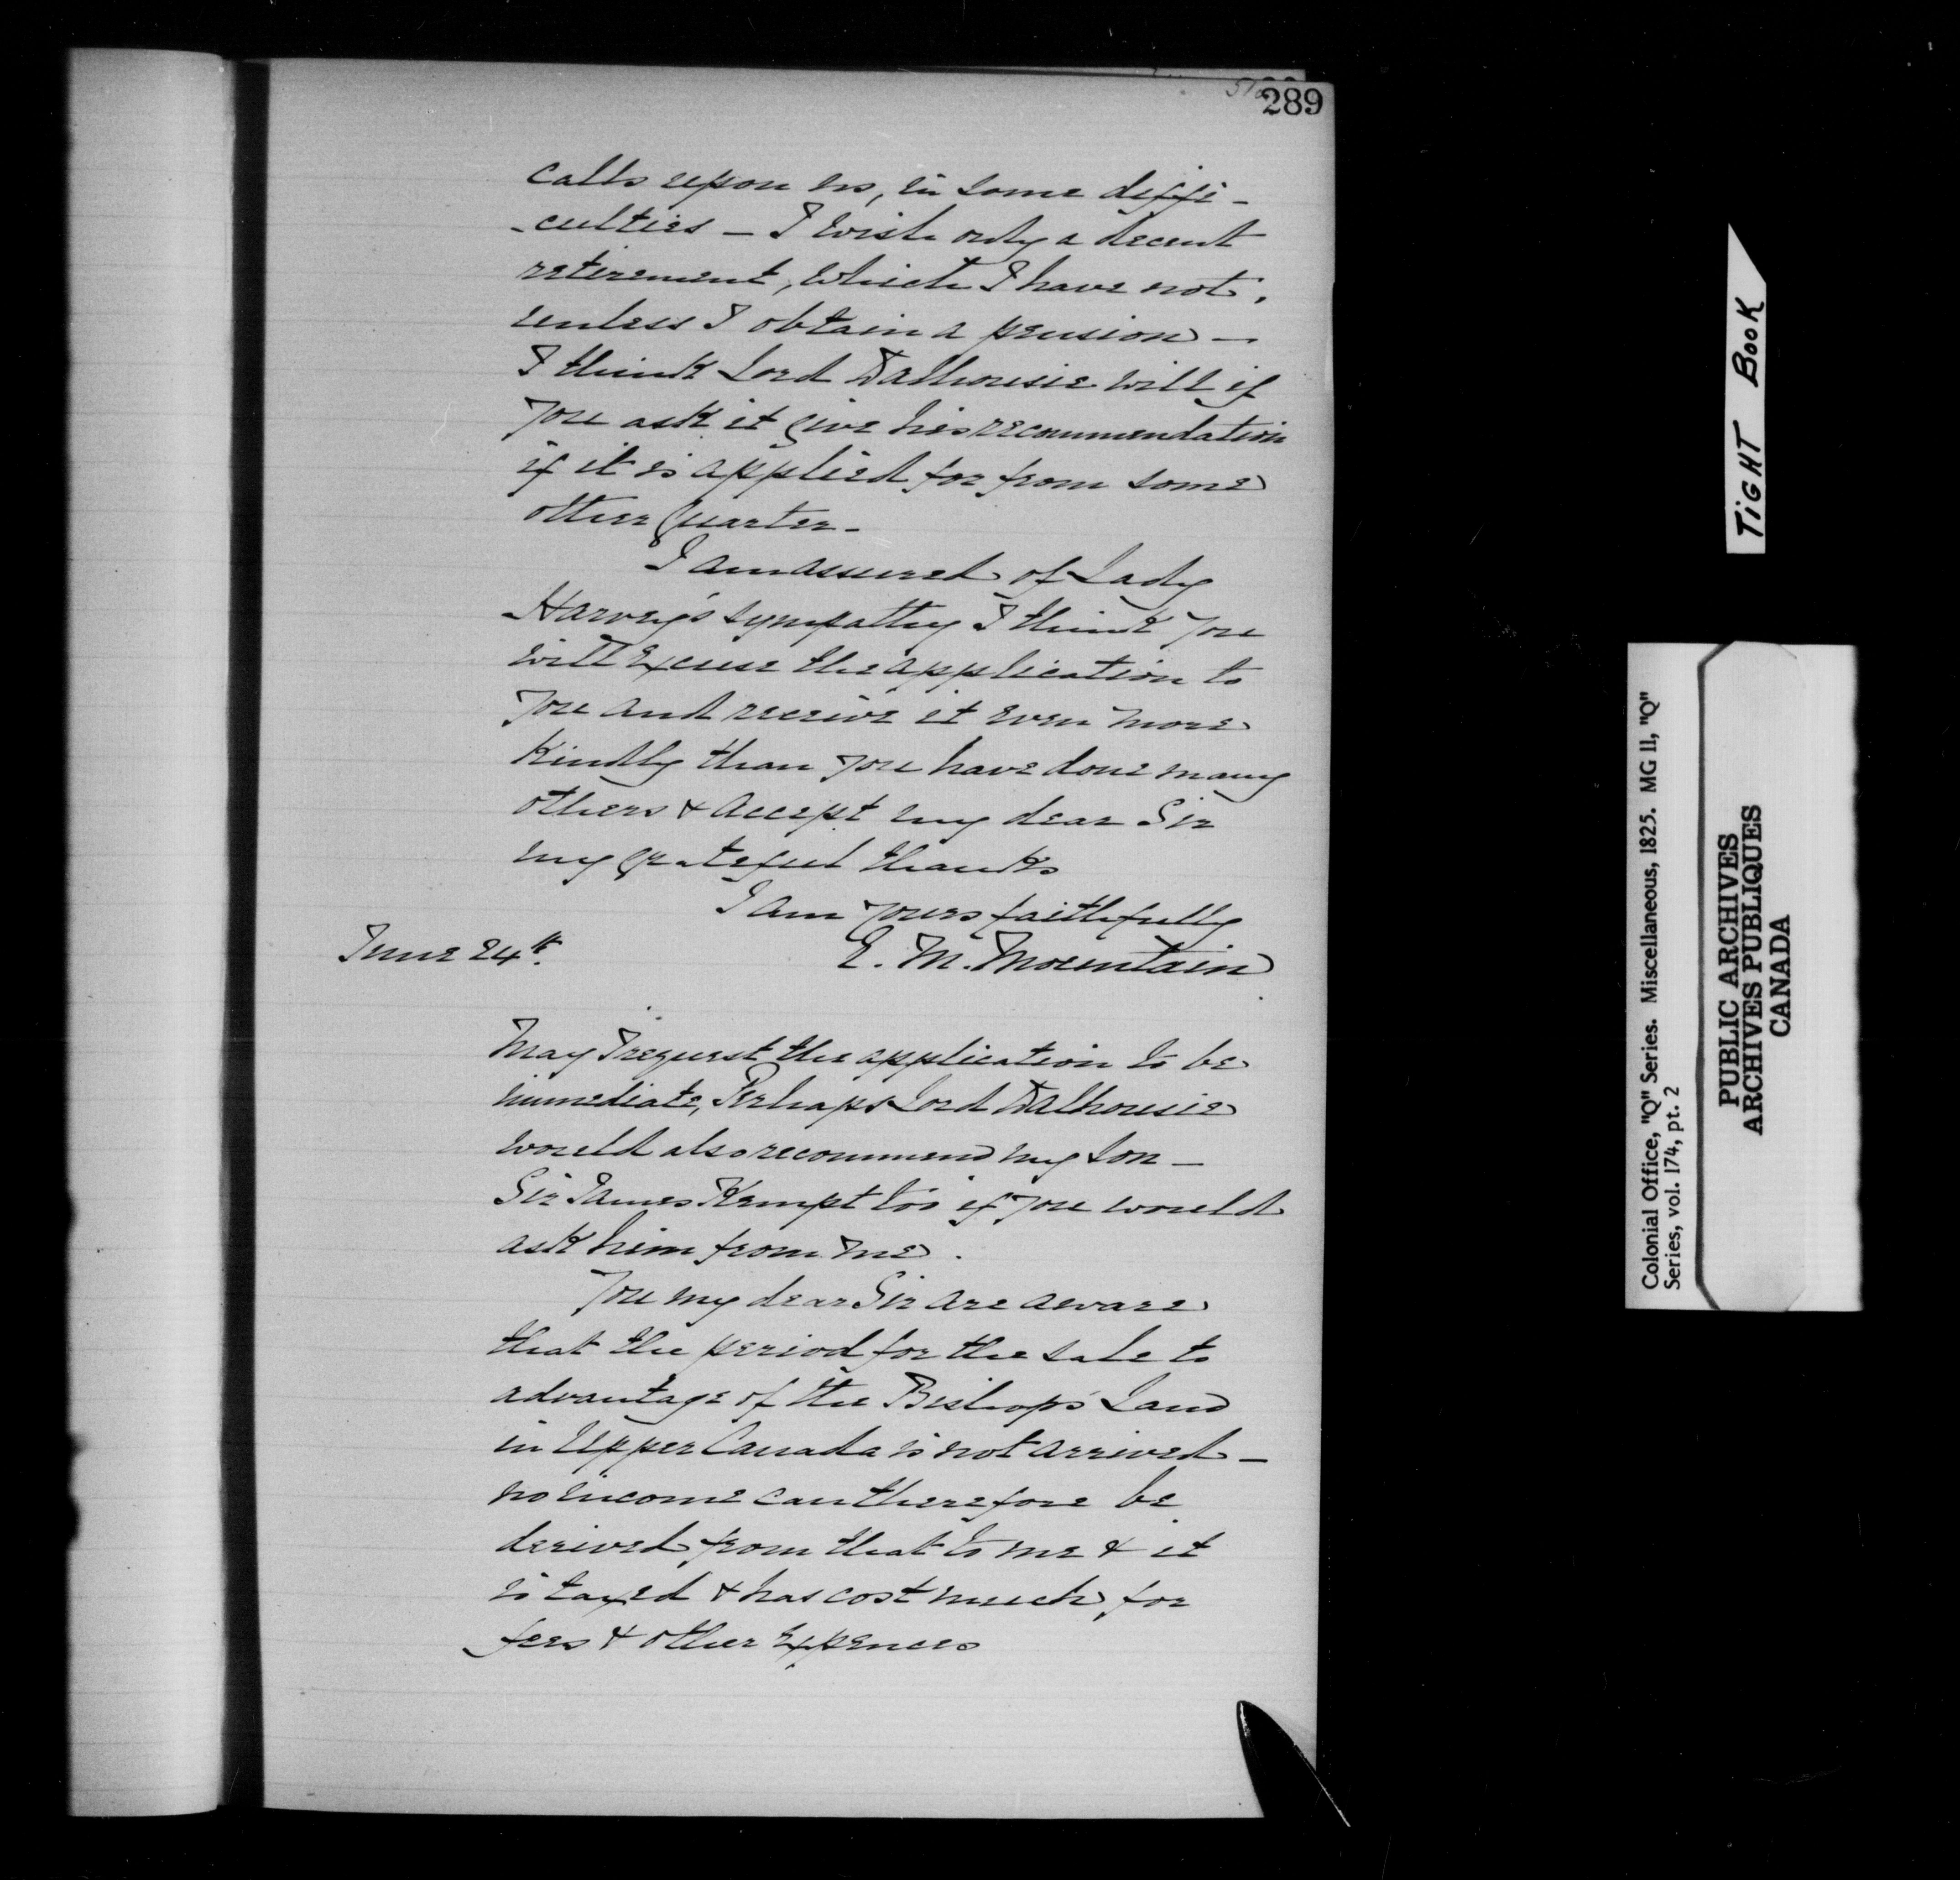 289
calls upon us, in some diffi-
-culties - I wish only a decent
retirement, which I have not,
unless I obtain a pension -
I think Lord Dalhousie will if
you ask it give his recommendation
if it is applied for from some
other quarter -
I am assured of Lady
Harvey's sympathy I think you
will excuse the application to
you and receive it even more
kindly than you have done many
others & accept my dear Sir
my grateful thanks
I am yours faithfully
June 24th. E. M. Mountain
May I request the application to be
immediate, Perhaps Lord Dalhousie
would also recommend my son -
Sir James Kempt too if you would
ask him from me.
You my dear Sir are aware
that the period for the sale to
advantage of the Bishop's Land
in Upper Canada is not arrived -
no income can therefore be
derived from that to me & it
is taxed & has cost much for
fees & other expences
TIGHT BOOK
Colonial Office, "Q" Series. Miscellaneous, 1825. MG 11, "Q"
Series, vol. 174, pt. 2
PUBLIC ARCHIVES
ARCHIVES PUBLIQUES
CANADA